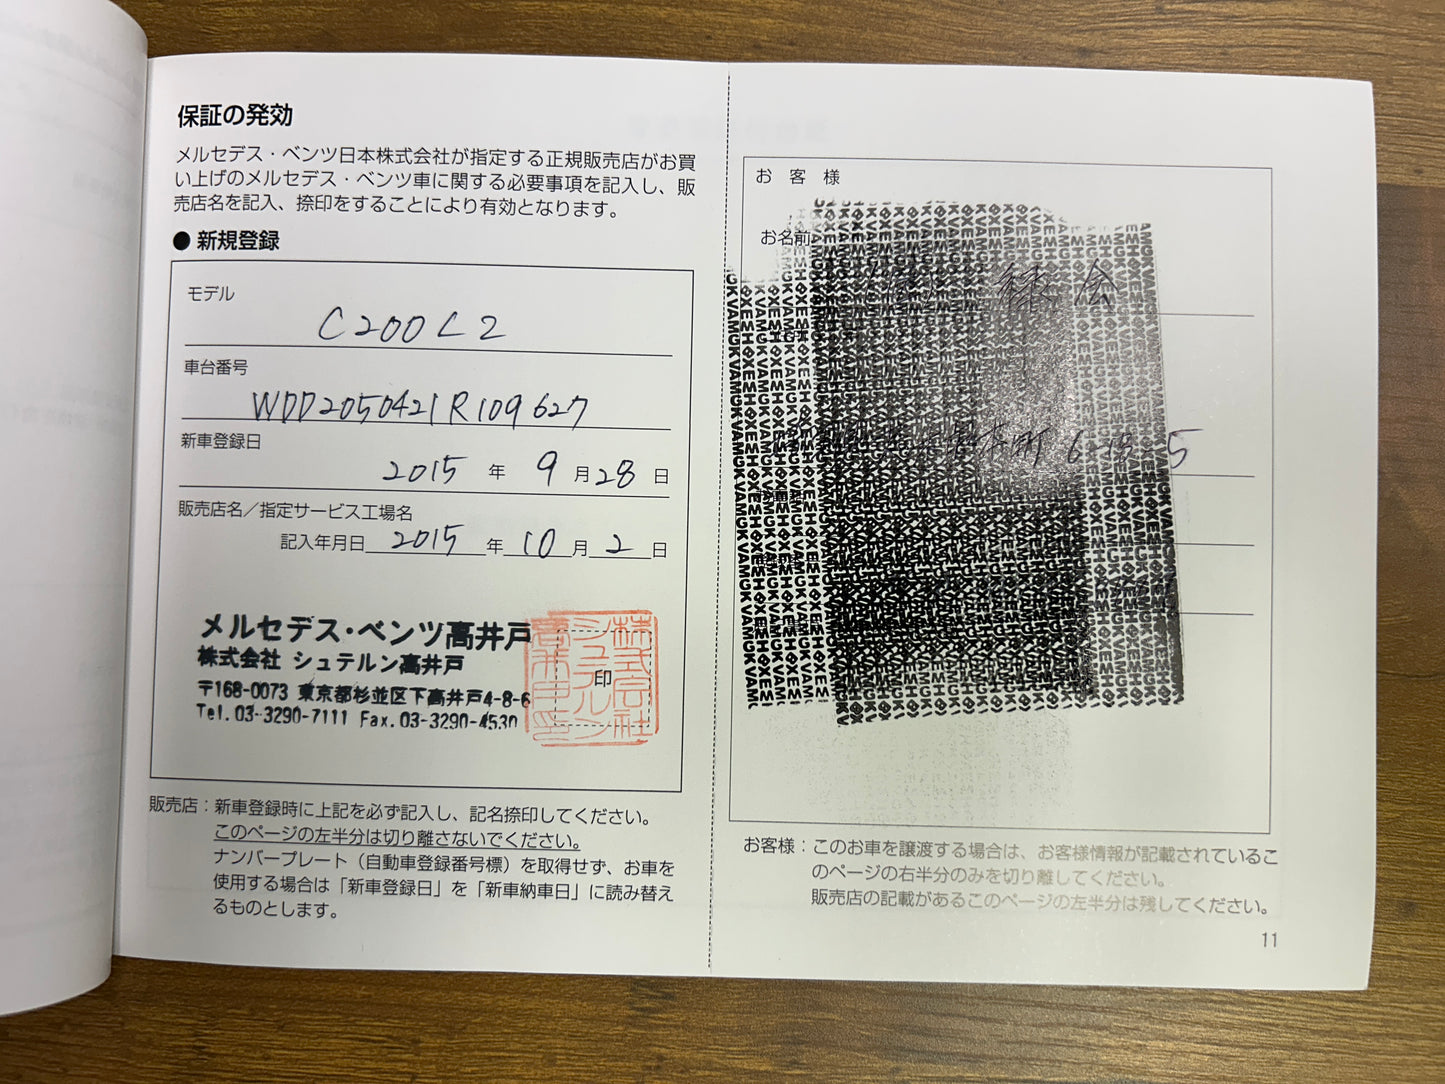 保証の発効
メルセデス・ベンツ日本株式会社が指定する正規販売店がお買
い上げのメルセデス・ベンツ車に関する必要事項を記入し、販
売店名を記入、捺印をすることにより有効となります。
● 新規登録
モデル
C200L2
車台番号
WDD2050421R109627
新車登録日
2015 年 9 月 28 日
販売店名／指定サービス工場名
記入年月日 2015 年 10 月 2 日
メルセデス・ベンツ高井戸
株式会社 シュテルン高井戸
〒168-0073 東京都杉並区下高井戸4-8-6
Tel. 03-3290-7111 Fax. 03-3290-4530
印
販売店：新車登録時に上記を必ず記入し、記名捺印してください。
このページの左半分は切り離さないでください。
ナンバープレート（自動車登録番号標）を取得せず、お車を
使用する場合は「新車登録日」を「新車納車日」に読み替え
るものとします。
お 客 様
お名前
お客様：このお車を譲渡する場合は、お客様情報が記載されているこ
のページの右半分のみを切り離してください。
販売店の記載があるこのページの左半分は残してください。
11